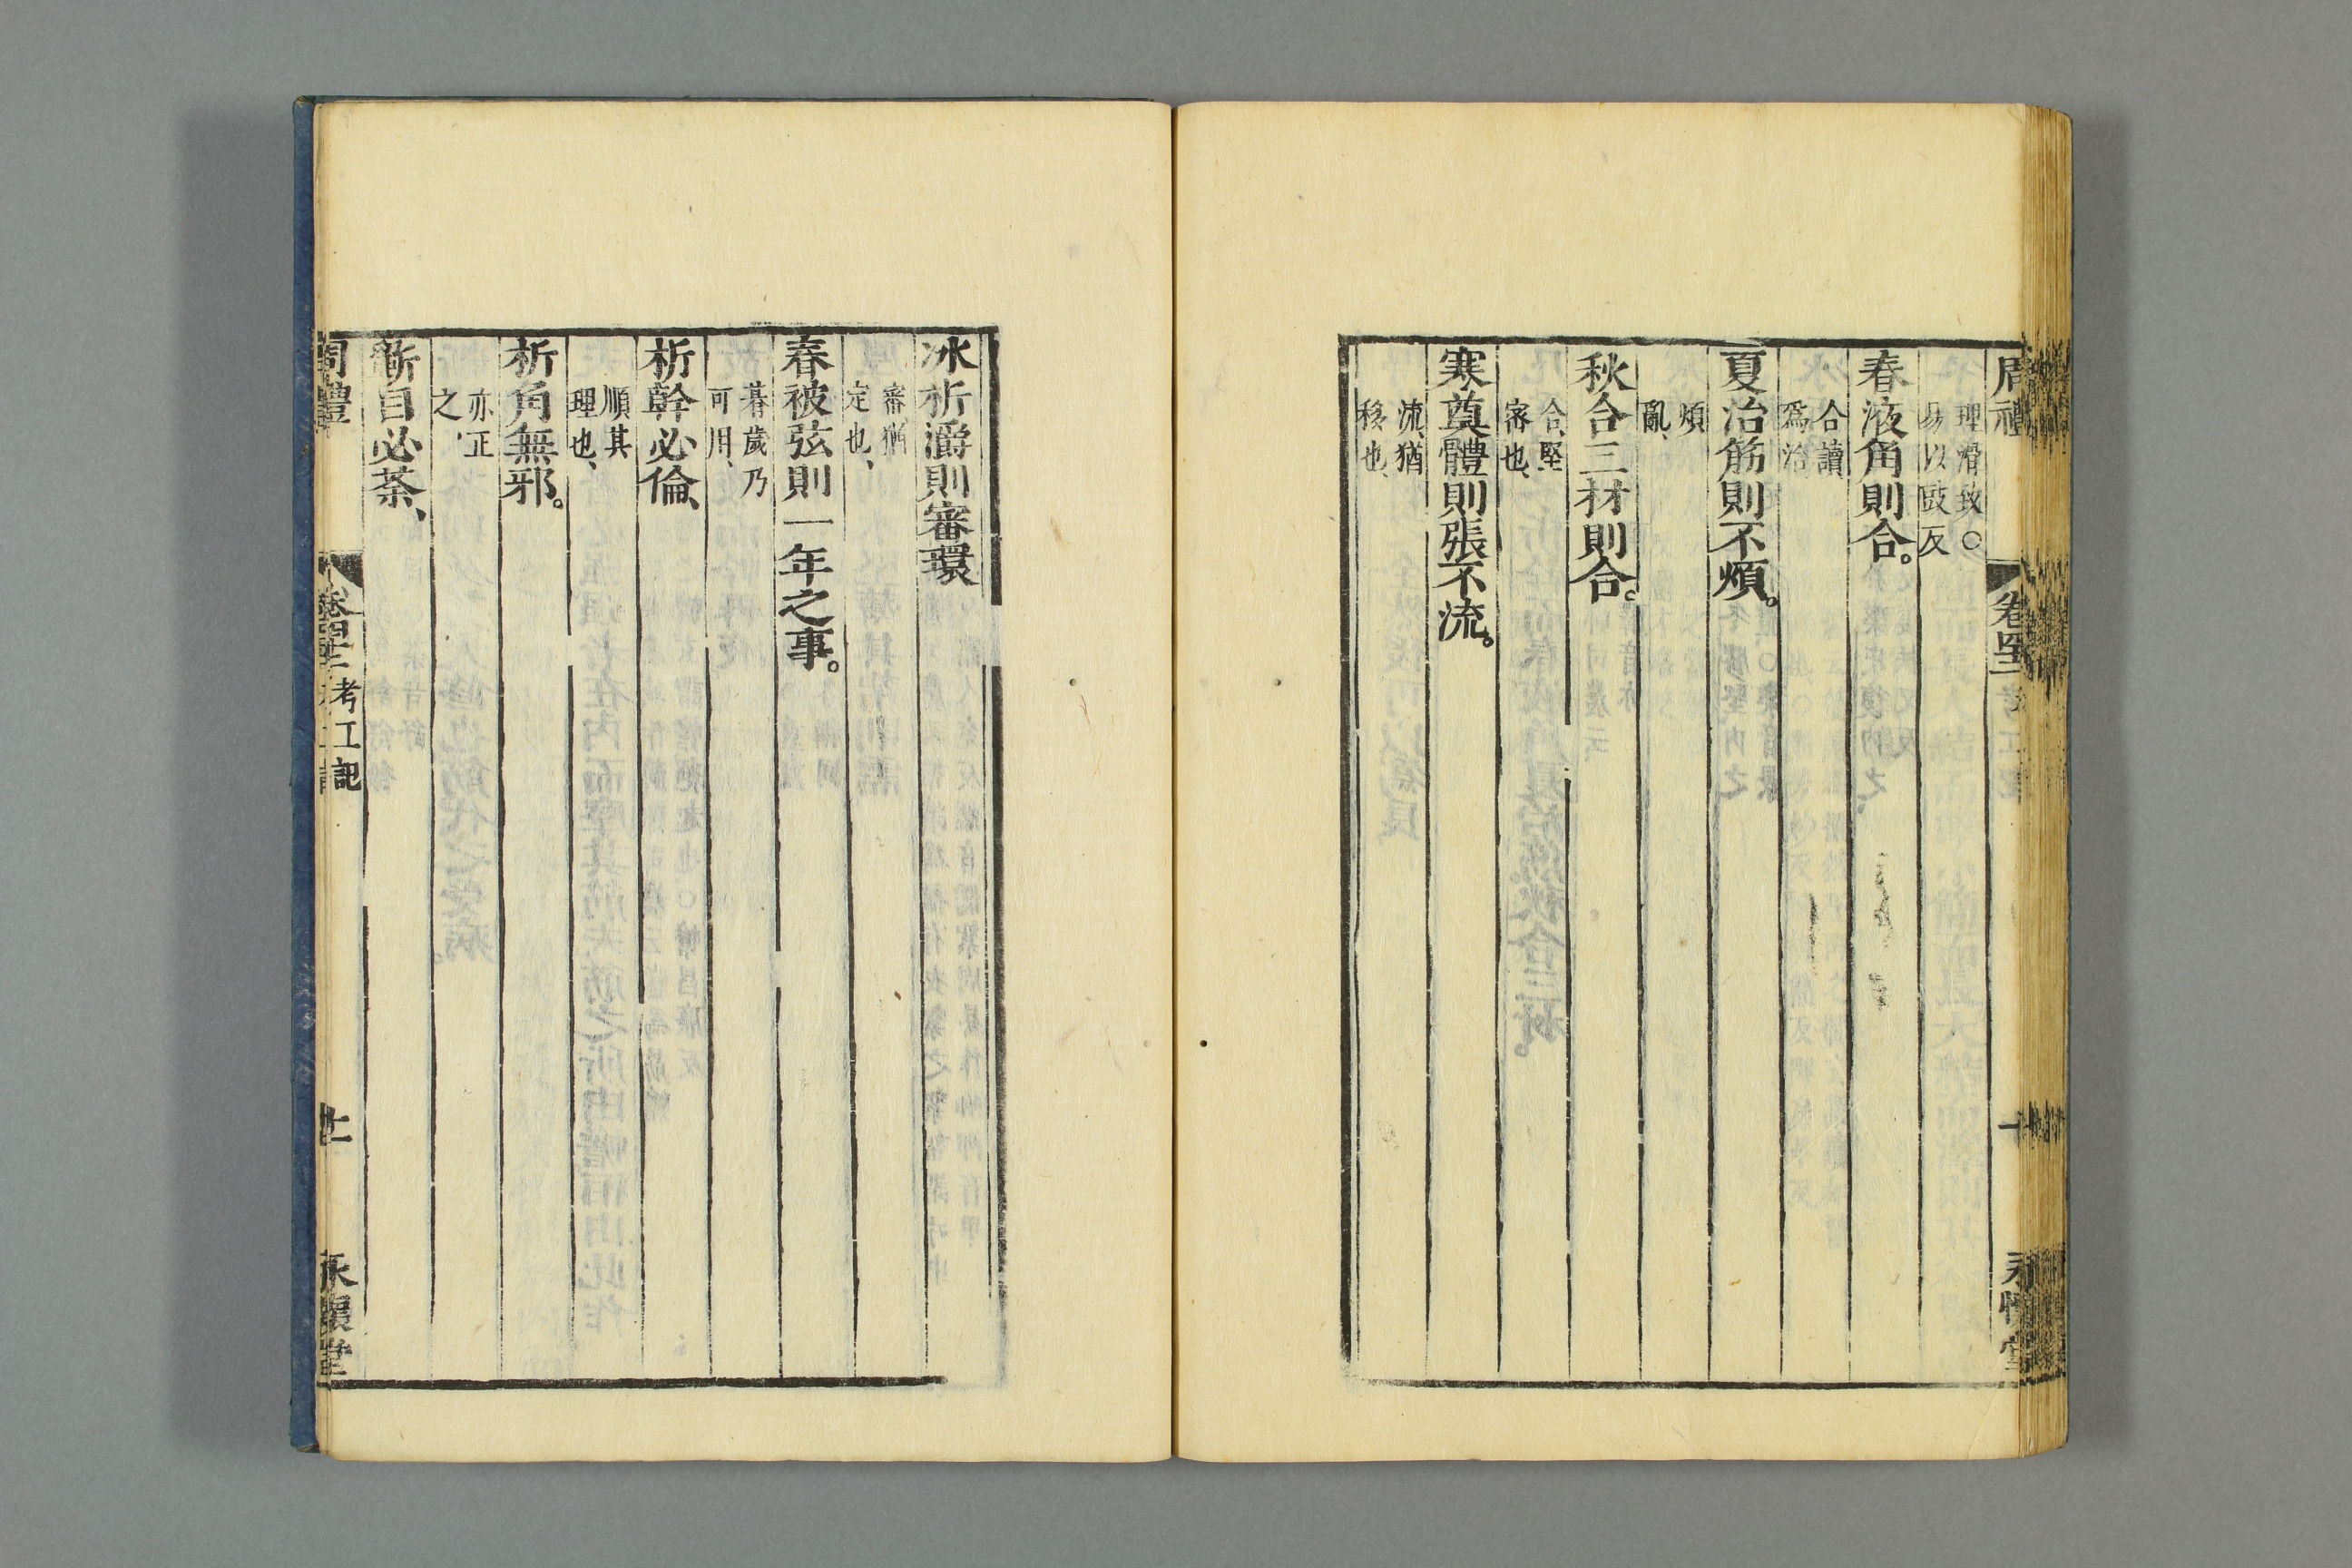 周禮
卷四十二
十
永懷堂
理滑致○
易以豉反
春液角則合。
合讀
爲洽
夏治筋則不煩。
煩
亂、
秋合三材則合。
合、堅
密也、
寒奠體則張不流。
流、猶
移也、
冰析灂則審環
審猶
定也、
春被弦則一年之事。
朞歲乃
可用、
析幹必倫、
順其
理也、
析角無邪。
亦正
之、
斲目必荼、
周禮
卷四十二 考工記
十一
永懷堂